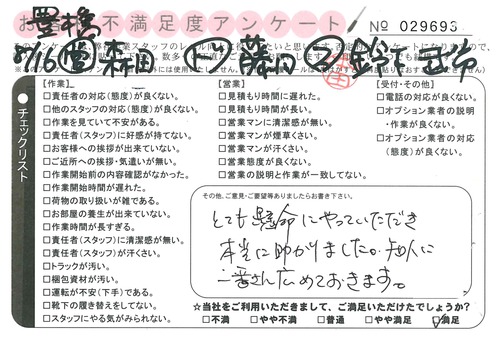 豊橋
お 不満足度アンケート
No 029693
8/16 森田 藤田 鈴木
チェックリスト
【作業】
□責任者の対応(態度)が良くない。
□他のスタッフの対応(態度)が良くない。
□作業を見ていて不安がある。
□責任者(スタッフ)に好感が持てない。
□お客様への挨拶が出来ていない。
□ご近所への挨拶・気遣いが無い。
□作業開始前の内容確認がなかった。
□作業開始時間が遅れた。
□荷物の取り扱いが雑である。
□お部屋の養生が出来ていない。
□作業時間が長すぎる。
□責任者(スタッフ)に清潔感が無い。
□責任者(スタッフ)が汗くさい。
□トラックが汚い。
□梱包資材が汚い。
□運転が不安(下手)である。
□靴下の履き替えをしてない。
□スタッフにやる気がみられない。
【営業】
□見積もり時間に遅れた。
□見積もり時間が長い。
□営業マンに清潔感が無い。
□営業マンが煙草くさい。
□営業マンが汗くさい。
□営業態度が良くない。
□営業の説明と作業が一致してない。
【受付・その他】
□電話の対応が良くない。
□オプション業者の説明・作業が良くない。
□オプション業者の対応(態度)が良くない。
その他、ご意見・ご要望等ありましたらお書き下さい。
とても懸命にやっていただき
本当に助かりました。知人に
一番さん広めておきます。
☆当社をご利用いただきまして、ご満足いただけたでしょうか?
□不満 □やや不満 □普通 □やや満足 ☑満足